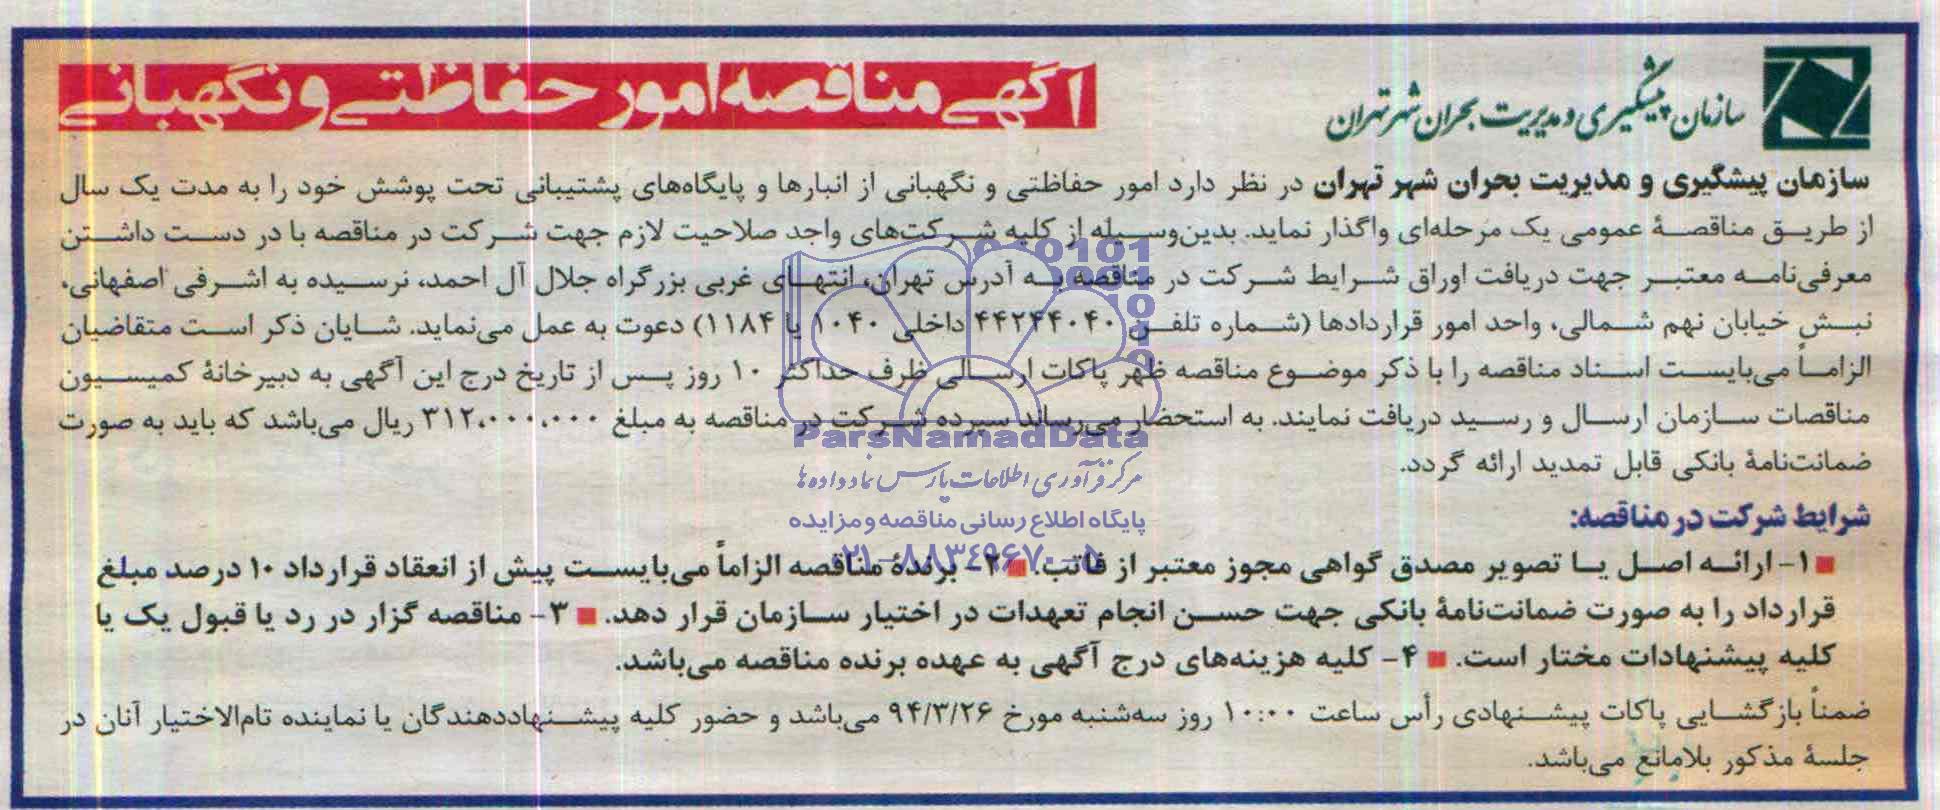 سازمان پیشگیری و مدیریت بحران شهر تهران
آگهی مناقصه امور حفاظتی و نگهبانی
سازمان پیشگیری و مدیریت بحران شهر تهران در نظر دارد امور حفاظتی و نگهبانی از انبارها و پایگاه‌های پشتیبانی تحت پوشش خود را به مدت یک سال
از طریق مناقصهٔ عمومی یک مرحله‌ای واگذار نماید. بدین‌وسیله از کلیه شرکت‌های واجد صلاحیت لازم جهت شرکت در مناقصه با در دست داشتن
معرفی‌نامه معتبر جهت دریافت اوراق شرایط شرکت در مناقصه به آدرس تهران، انتهای غربی بزرگراه جلال آل احمد، نرسیده به اشرفی اصفهانی،
نبش خیابان نهم شمالی، واحد امور قراردادها (شماره تلفن ۴۴۲۴۴۰۴۰ داخلی ۱۰۴۰ یا ۱۱۸۴) دعوت به عمل می‌نماید. شایان ذکر است متقاضیان
الزاماً می‌بایست اسناد مناقصه را با ذکر موضوع مناقصه ظهر پاکات ارسالی ظرف حداکثر ۱۰ روز پس از تاریخ درج این آگهی به دبیرخانهٔ کمیسیون
مناقصات سازمان ارسال و رسید دریافت نمایند. به استحضار می‌رساند سپرده شرکت در مناقصه به مبلغ ۳۱۲،۰۰۰،۰۰۰ ریال می‌باشد که باید به صورت
ضمانت‌نامهٔ بانکی قابل تمدید ارائه گردد.
شرایط شرکت در مناقصه:
■ ۱- ارائه اصل یا تصویر مصدق گواهی مجوز معتبر از فاتب. ■ ۲- برندهٔ مناقصه الزاماً می‌بایست پیش از انعقاد قرارداد ۱۰ درصد مبلغ
قرارداد را به صورت ضمانت‌نامهٔ بانکی جهت حسن انجام تعهدات در اختیار سازمان قرار دهد. ■ ۳- مناقصه گزار در رد یا قبول یک یا
کلیه پیشنهادات مختار است. ■ ۴- کلیه هزینه‌های درج آگهی به عهده برنده مناقصه می‌باشد.
ضمناً بازگشایی پاکات پیشنهادی رأس ساعت ۱۰:۰۰ روز سه‌شنبه مورخ ۹۴/۳/۲۶ می‌باشد و حضور کلیه پیشنهاددهندگان یا نماینده تام‌الاختیار آنان در
جلسهٔ مذکور بلامانع می‌باشد.
ParsNamadData
مرکز فرآوری اطلاعات پارس نماد داده ها
پایگاه اطلاع رسانی مناقصه و مزایده
۰۲۱-۸۸۳۴۹۶۷۰-۵